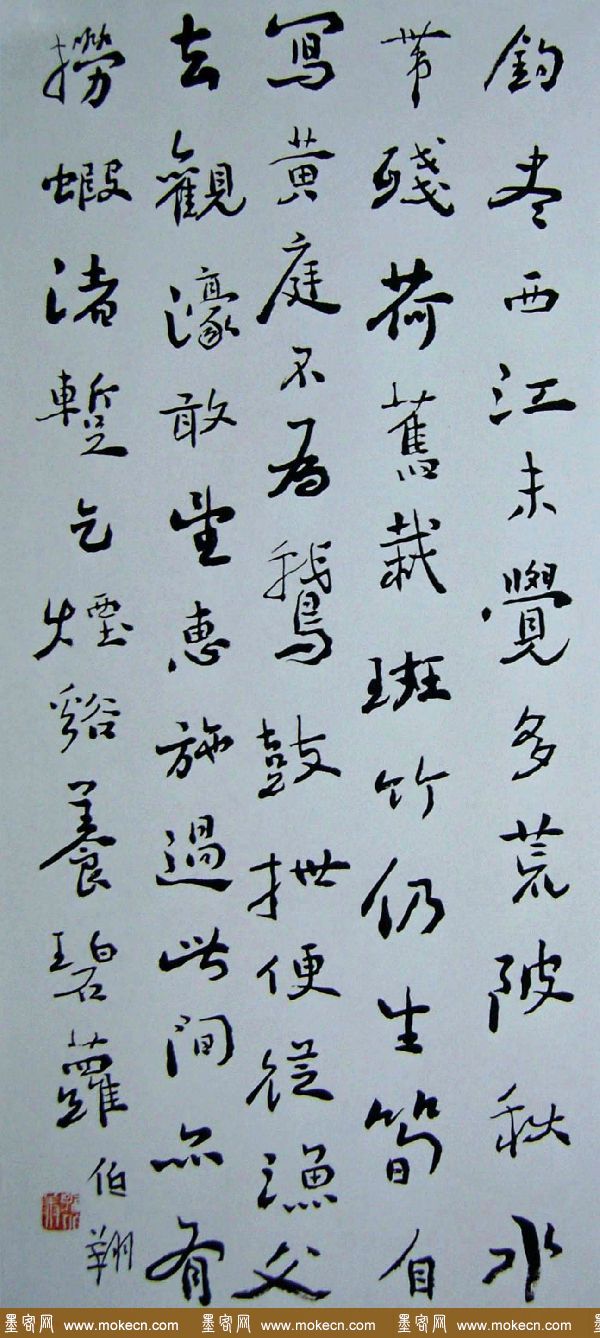 钓尽西江未覺多荒陂秋水
带殘荷舊栽斑竹仍生筍自
寫黄庭不為鵝鼓枻便從漁父
去觀濠敢望惠施過此间亦有
撈蝦渚暫乞煙谿養碧蘿
伯翔
墨客网 www.mokecn.com 墨客网 www.mokecn.com 墨客网 www.mokecn.com